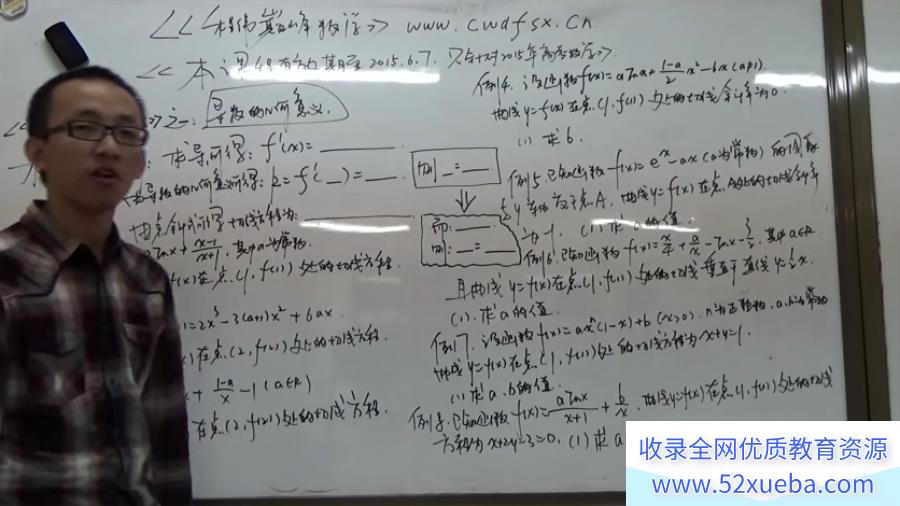 数学>> www.cwdfsx.cn
<<本课程有效期至2015.6.7. 只针对2015年高考数学>>
之一: 导数的几何意义.
求导可得: f'(x)=
由导数的几何意义可得: k=f'(_)=
由点斜式可得切线方程为:
则_=_
而:
则: _=_
lnx+(x-1)/(x+1), 其中a为常数.
f(x)在点(1,f(1))处的切线方程.
)=2x³-3(a+1)x²+6ax
)在点(2,f(2))处的切线方程.
+(1-a)/x-1(a∈R)
在点(2,f(2))处的切线方程.
例4. 设函数f(x)=alnx+(1-a)/2 x²-bx(a≠1).
曲线y=f(x)在点(1,f(1))处的切线斜率为0.
(1)求b.
例5. 已知函数f(x)=e^x-ax(a为常数)的图象
与y轴交于点A, 曲线y=f(x)在点A处的切线斜率
为-1. (1)求a的值.
例6. 已知函数f(x)=x/4+a/x-lnx-3/2, 其中a∈R.
且曲线y=f(x)在点(1,f(1))处的切线垂直于直线y=½x.
(1)求a的值.
例7. 设函数f(x)=ax^n(1-x)+b(x>0), n为正整数, a,b为常数
曲线y=f(x)在点(1,f(1))处的切线方程为x+y=1.
(1)求a.b的值.
例8. 已知函数f(x)=alnx/(x+1)+b/x, 曲线y=f(x)在点(1,f(1))处的切线
方程为x+2y-3=0. (1)求a
收录全网优质教育资源
www.52xueba.com